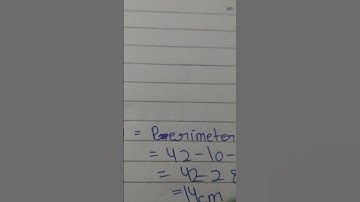 ) = Perimeter
= 42-10-
= 42-28
= 14cm